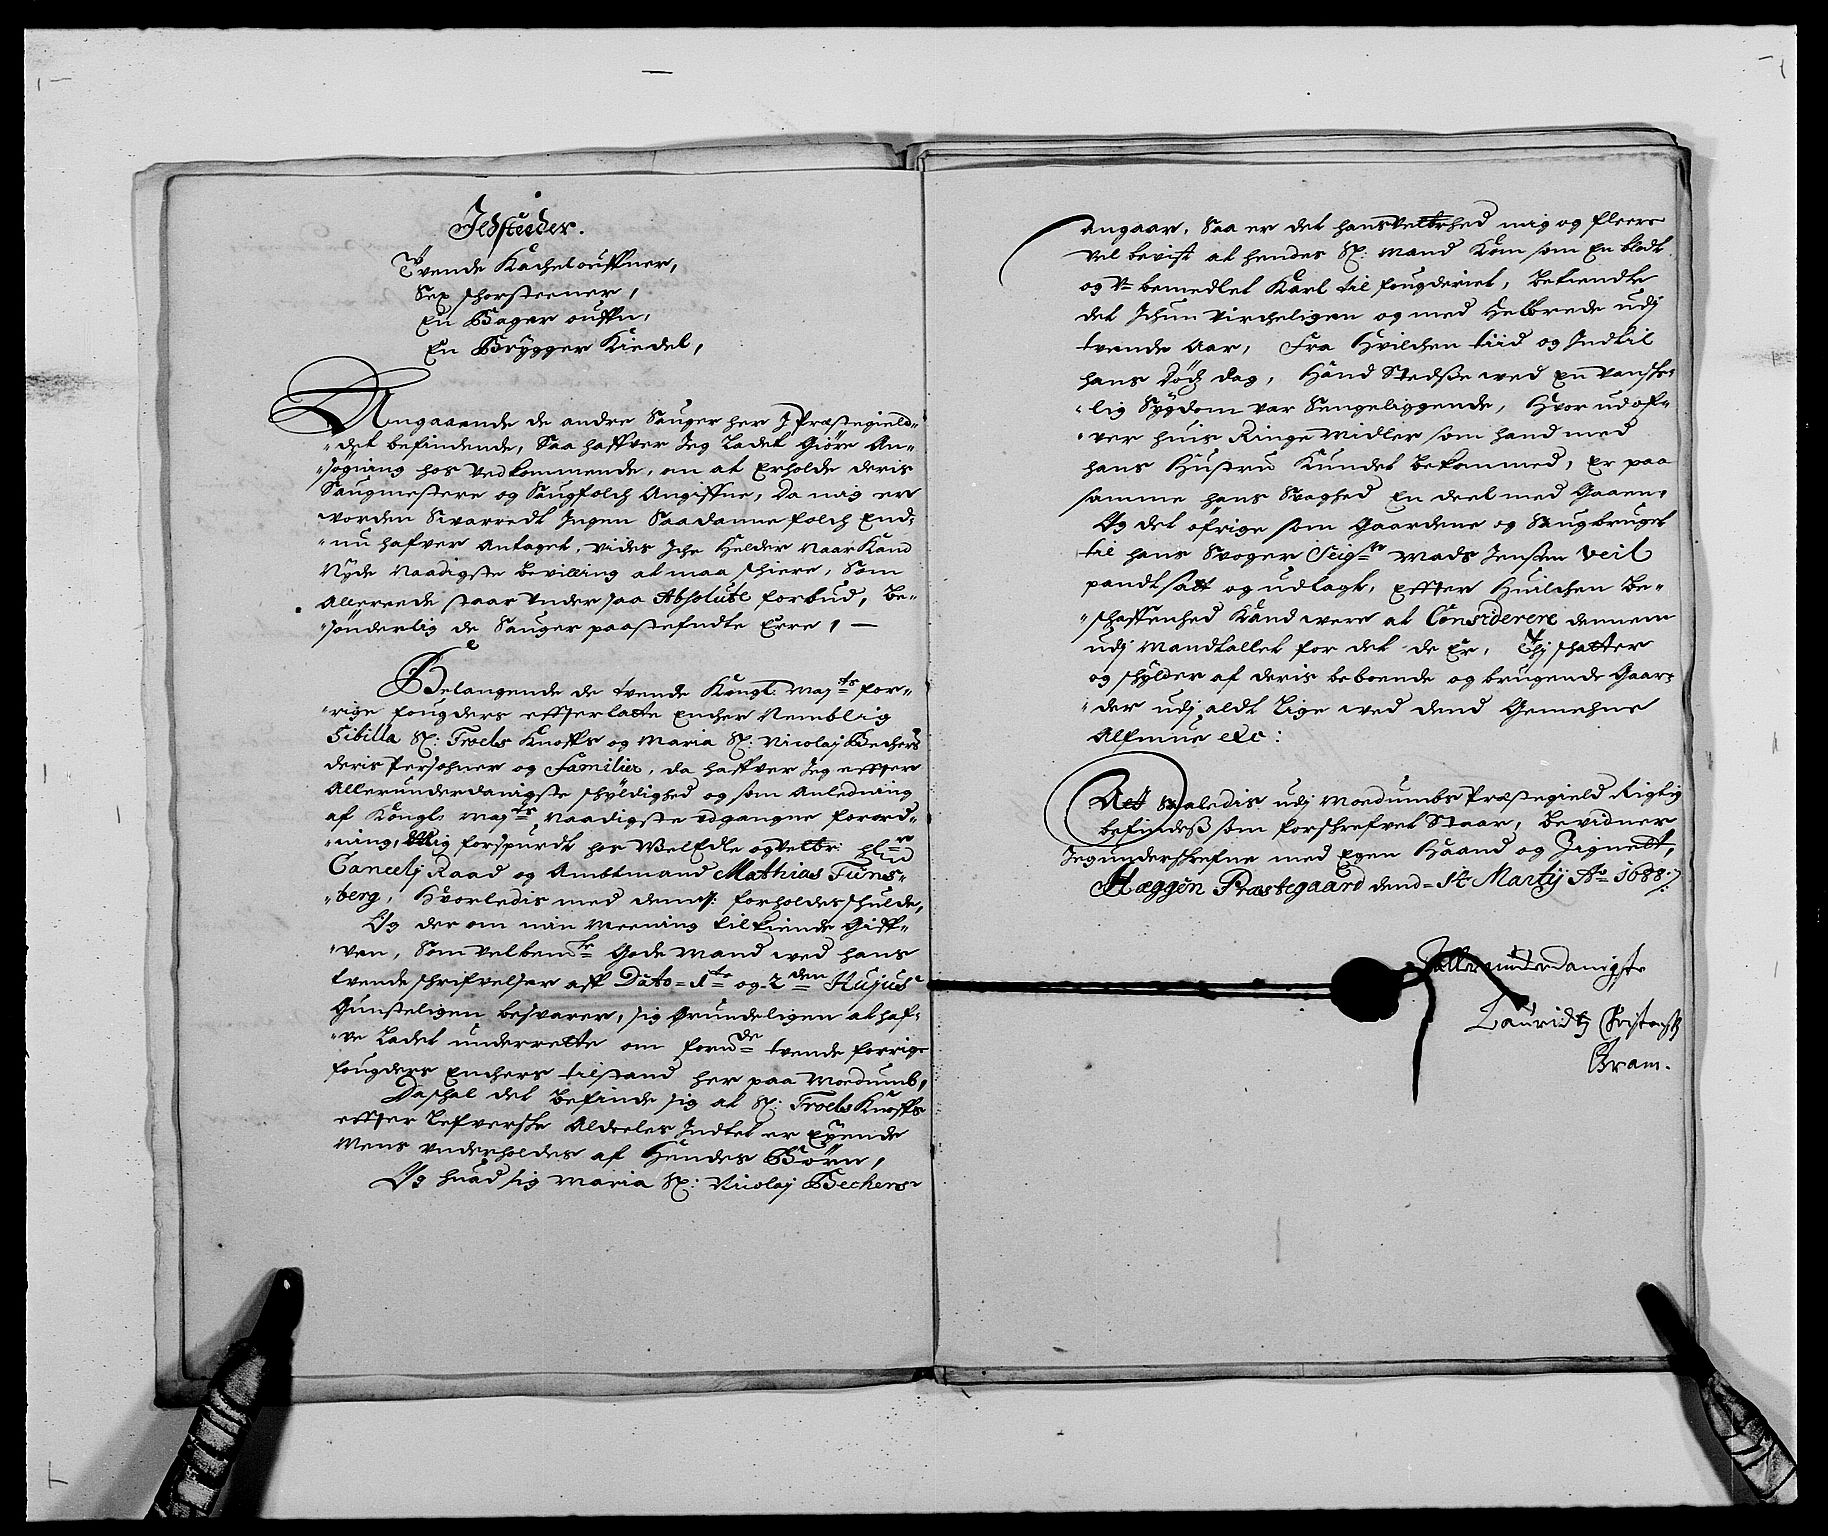 Ildsteeder.
Tvende Kachelouffner,
Sex Skorsteener,
En Bager ouffn,
En Brygger Kiedel,
Angaaende de andre Sauger her J Præstegield-
-det befindende, Saa haffver Jeg Ladet Giöre An-
-sögning hos Vedkommende, om at Erholde deris
Saugmestere og Saugfolch Angiffne, Da mig er
vorden Svarredt Ingen Saadanne folch End-
-nu hafver Antaget, vides Iche Heller Naar Kand
Nyde Naadigste bevilling at maa schiere, Som
Allereede staar Under saa Absolute forbud, Be-
-sönderlig de Sauger paa
Erre, —
Belangende de tvende Kongl: May:ts for-
-rige fougders effterlatte Encher Nemblig
Sibilla Sl: Troels Knoffs og Maria Sl: Nicolaj Bechers
deris Persohner og Familier, da haffver Jeg effter
Allerunderdanigste schyldighed og som Anledning
af Kongl: May:ts Naadigste udgangne forord-
-ning, Mig forspurdt hos WelEdle og Velbr: Hr
Cancelj Raad og Ambtmand Mathias Tuns-
-berg, Hvorledis med dem sl: forholdes schulde,
Og der om min Meening tilkiende Giff-
-ven, Som velbem:te Gode Mand wed hans
tvende schrifvelser aff Dato = 1:te og 2:den Hujus
Gunsteligen besvarer, sig Grundeligen at haf-
-ve Ladet underrette om form:de tvende forrige
fougders Enchers tilstand her paa Moedumb,
Da schal det befinde sig at Sl: Troels Knoffs
effter Lefversche Aldeeles Indtet er Eyende
Mens Underholdes af Hendes Börn,
Og huad sig Maria Sl: Nicolaj Bechers
Angaar, Saa er det hans Velbrhed mig og fleere
Vel bevist at hendes Sl: Mand Kom som En
og U-bemedlet Karl til fougderiet, Betiendte
det Ichun Vircheligen og med Helbrede udj
tvende Aar, Fra Hvilchen tiid og Indtil
hans Döds dag, Hand Stedsse wed En Vansche-
-lig Sÿgdom var Sengeliggende, Hvor udof-
-ver huis Ringe Midler som hand med
hans Hustru Kundet bekommed, Er paa
samme hans Svaghed En deel med Gaaen,
Og det öfrige som Gaardene og Saugbruget
til hans Svoger Seig:r Mads Jensen Veil
pandtsatt og udlagt, Effter Huilchen Be-
-schaffenhed Kand were at Considerere dennem
udj Mandtallet for det de Er, Thj schatter
og schylder af deris beboende og brugende Gaar-
-der udj aldt Lige wed dend Gemehne
Almue etc:
Att saaledis udj Moedumbs Præstegield Rigtig
befindess som forschrefvet Staar, Bevidner
Jeg underschrefne med Egen Haand og Zignett,
Heggen Præstegaard dend = 14 Martij Ao 1688.
Allerunderdanigste
Lauridtz Christensen
Bram.